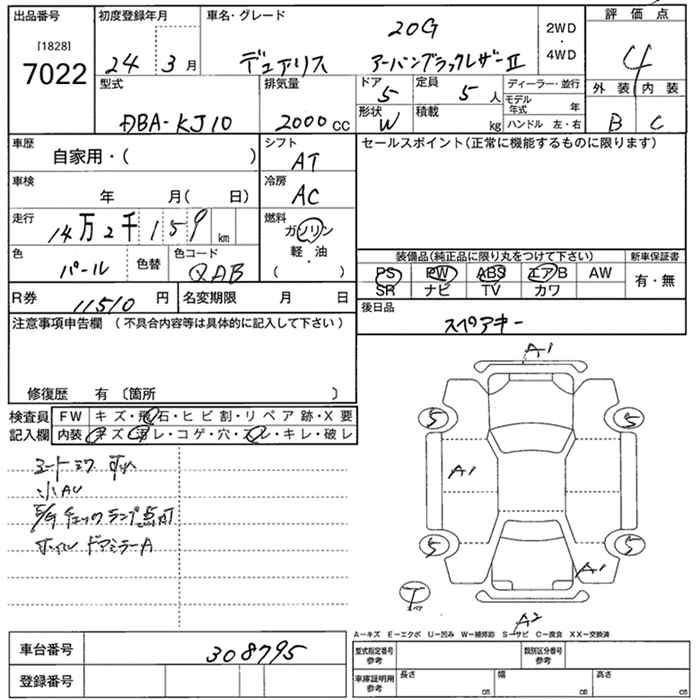 出品番号 初度登録年月 車名・グレード 評価点
[1828] 20G 2WD
7022 24 3月 デュアリス アーバンブラックレザーⅡ ・4WD 4
型式 排気量 ドア 定員 ディーラー・並行 外装 内装
5 5人 モデル年式 年
DBA-KJ10 2000cc 形状 W 積載 kg ハンドル 左・右 B C
車歴 自家用・( ) シフト AT セールスポイント(正常に機能するものに限ります)
車検 年 月( 日) 冷房 AC
走行 14万2千159km 燃料 ガソリン・軽油・( )
色 パール 色替 色コード QAB
装備品(純正品に限り丸をつけて下さい) 新車保証書
PS PW ABS エアB AW 有・無
SR ナビ TV カワ
R券 11510円 名変期限 月 日 後日品
スペアキー
注意事項申告欄 (不具合内容等は具体的に記入して下さい)
修復歴 有 〔箇所 〕
検査員 FW キズ・飛石・ヒビ割・リペア跡・X要
記入欄 内装 キズ・汚レ・コゲ・穴・スレ・キレ・破レ
小AU
チェックランプ点灯
ドアミラーA
A1
5 5
A1
5 5
A1
A2
A-キズ E-エクボ U-凹み W-補修跡 S-サビ C-腐食 XX-交換済
車台番号 308795
型式指定番号 参考 類別区分番号 参考
登録番号 車庫証明用 参考 長さ cm 幅 cm 高さ cm